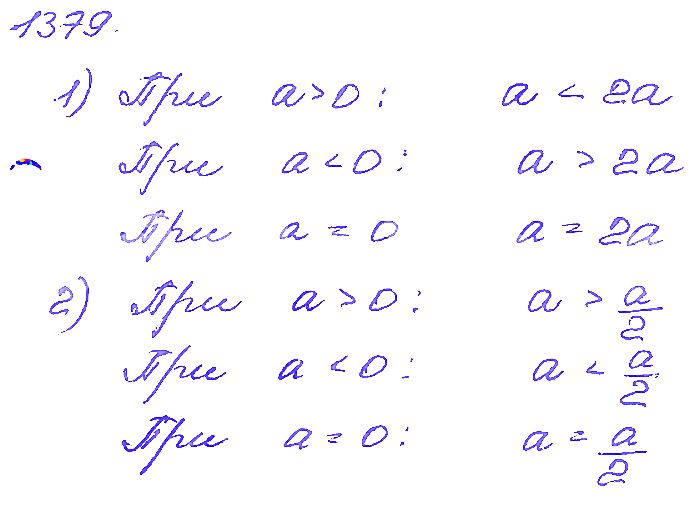 1379.
1) При a > 0 : a < 2a
При a < 0 : a > 2a
При a = 0 a = 2a
2) При a > 0 : a > a/2
При a < 0 : a < a/2
При a = 0 : a = a/2